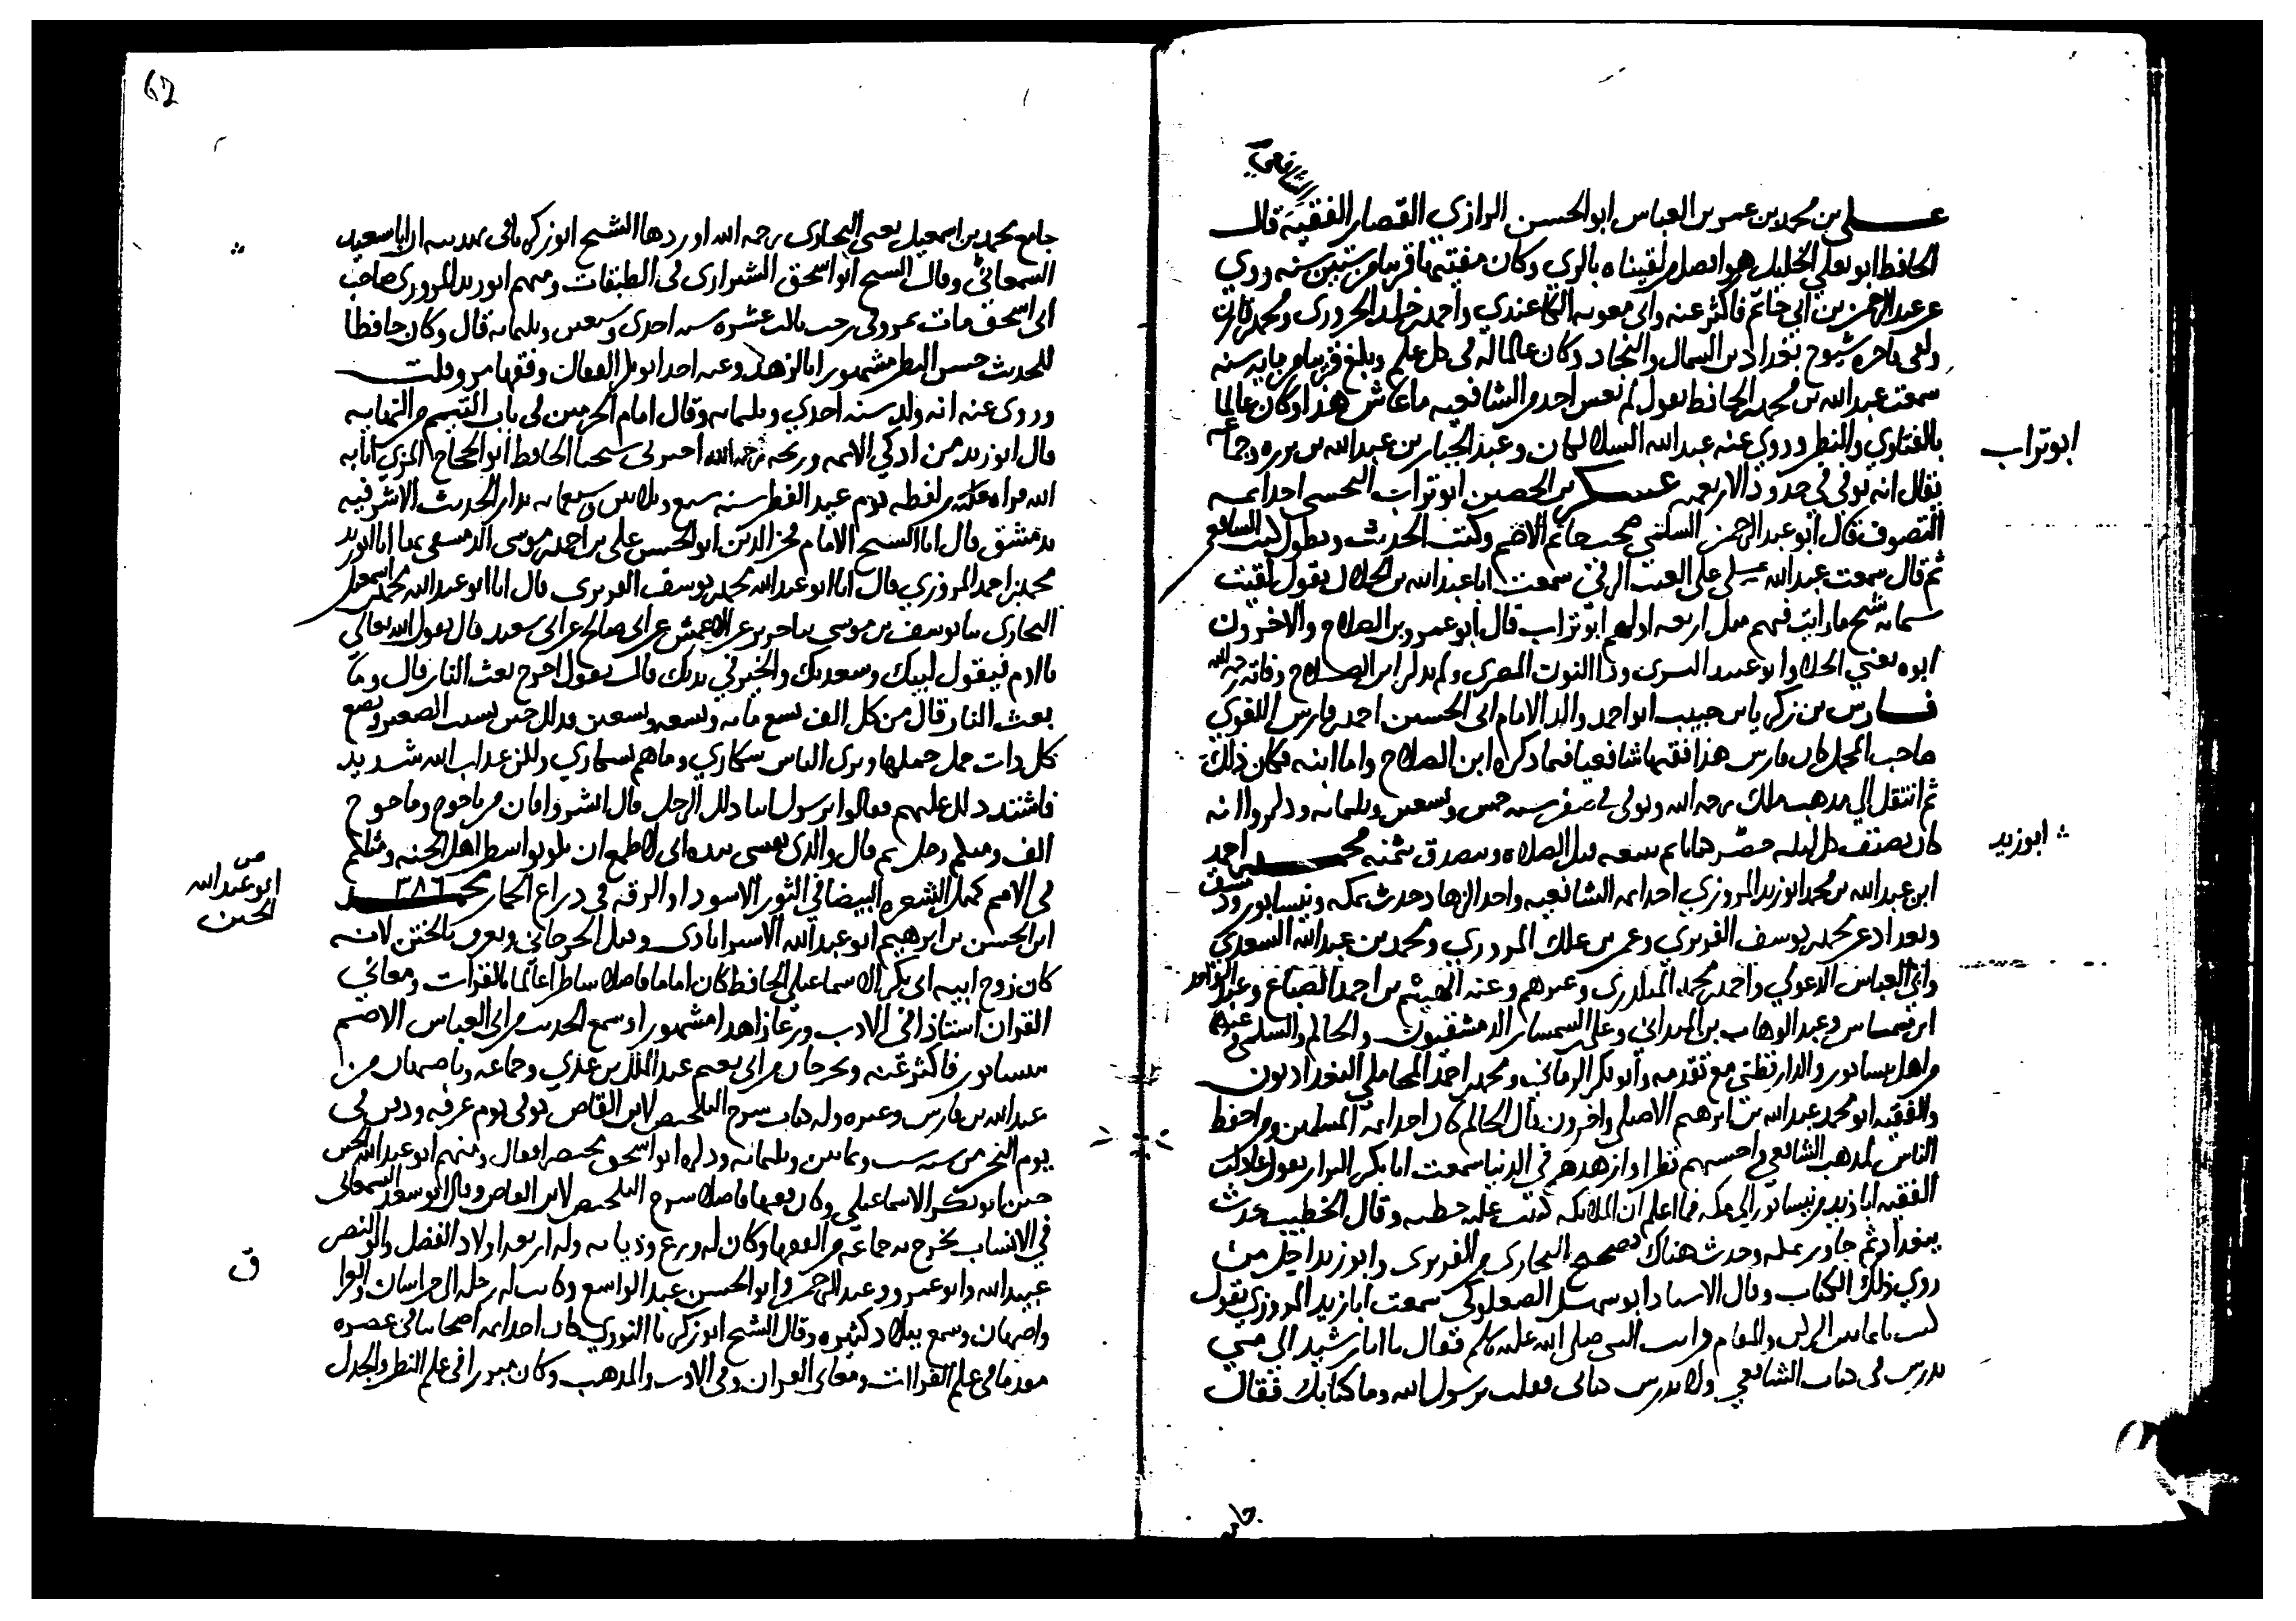 الشافعي
علي بن محمد بن عمر بن العباس ابو الحسن الرازي القصار الفقيه قال
الحافظ ابو يعلي الخليلي هو افضل من لقيناه بالري وكان مفتيها قريبا من ستين سنه روي
عن عبد الرحمن بن ابي حاتم فاكثر عنه وابي معويه الكاغندي واحمد بن خلد الحروري ومحمد بن قارن
ولقي باخره شيوخ بغداد بن السماك والنجاد وكان عالما له في كل علم وبلغ قريبا من مايه سنه
سمعت عبد الله بن محمد الحافظ يقول لم يعش احد من الشافعيه ما عاش هذا وكان عالما
بالفتاوي والنظر وروي عنه عبد الله وعبد الجبار بن عبد الله بن وجماعه
يقال انه توفي في حدود الاربعمايه عسكر بن الحصين ابو تراب النخشبي احد ايمه
ابو تراب
التصوف قال ابو عبد الرحمن السلمي صحب حاتم الاصم وكتب الحديث ونظر في كتب الشافعي
ثم قال سمعت عبد الله بن علي سمعت ابا عبد الله بن الجلا يقول لقيت
ستمايه شيخ ما رايت فيهم مثل اربعه اولهم ابو تراب قال ابو عمرو بن الصلاح والاخرون
ابوه يعني الجلا وابو عبيد البسري وذا النون المصري ولم يذكر ابن الصلاح وفاته رحمه الله
فارس بن زكريا بن حبيب ابو احمد والد الامام ابي الحسين احمد بن فارس اللغوي
صاحب المجمل كان فارس هذا فقيها شافعيا فيما ذكره ابن الصلاح واما ابنه فكان كذلك
ثم انتقل الي مذهب ملك رحمه الله وتوفي في صفر سنه خمس وتسعين وثلثمايه وذكروا انه
كان يصنف كل ليله جمعه قبل الصلاه ويتصدق بثمنه محمد بن احمد
ابو زيد
ابن عبد الله بن محمد ابو زيد المروزي احد ايمه الشافعيه واحد الزهاد حدث بمكه ونيسابور ودمشق
وبغداد عن محمد بن يوسف الفربري وعمر بن علك المروزي ومحمد بن عبد الله السعدي
وابي العباس الدغولي واحمد بن محمد المنكدري وغيرهم وعنه الهيثم بن احمد الصباغ وعبد الواحد
ابن مشماس وعبد الوهاب بن الميداني وعلي بن السمسار الدمشقيون والحاكم والسلمي وغيرهما
من اهل نيسابور والدارقطني مع تقدمه وابو بكر البرقاني ومحمد بن احمد المحاملي البغداديون
والفقيه ابو محمد عبد الله بن ابرهيم الاصيلي واخرون قال الحاكم كان احد ايمه المسلمين ومن احفظ
الناس لمذهب الشافعي واحسنهم نظرا وازهدهم في الدنيا سمعت ابا بكر البزار يقول عادلت
الفقيه ابا زيد من نيسابور الي مكه فما اعلم ان الملايكه كتبت عليه خطيه وقال الخطيب حدث
ببغداد ثم جاور بمكه وحدث هناك بصحيح البخاري عن الفربري وابو زيد اجل من
روي ذلك الكتاب وقال الاستاذ ابو سهل الصعلوكي سمعت ابا زيد المروزي يقول
كنت نايما بين الركن والمقام فرايت النبي صلى الله عليه وسلم فقال يا ابا زيد الي متي
تدرس في كتاب الشافعي ولا تدرس كتابي فقلت يرسول الله وما كتابك فقال
جامع
62
جامع محمد بن اسمعيل يعني البخاري رحمه الله اوردها الشيخ ابو زكريا في تهذيبه ابا سعيد
السمعاني وقال الشيخ ابو اسحق الشيرازي في الطبقات ومنهم ابو زيد المروزي صاحب
ابي اسحق مات بمرو في رجب ثالث عشره سنه احدي وسبعين وثلثمايه قال وكان حافظا
للمذهب حسن النظر مشهورا بالزهد وعنه اخذ ابو بكر القفال وفقها مرو قلت
وروي عنه انه ولد سنه احدي وثلثمايه وقال امام الحرمين في باب التيمم من النهايه
قال ابو زيد من اذكي الايمه قريحه رحمه الله اخبرني شيخنا الحافظ ابو الحجاج المزي اثابه
الله قراه عليه من لفظه يوم عيد الفطر سنه سبع وثلاثين وسبعمايه بدار الحديث الاشرفيه
بدمشق قال انا الشيخ الامام فخر الدين ابو الحسن علي بن احمد انا ابو زيد
محمد بن احمد المروزي قال انا ابو عبد الله محمد بن يوسف الفربري قال انا ابو عبد الله محمد بن اسمعيل
البخاري ثنا يوسف بن موسي ثنا جرير عن الاعمش عن ابي صالح عن ابي سعيد قال يقول الله تعالي
يا ادم فيقول لبيك وسعديك والخير في يديك قال يقول اخرج بعث النار قال وما
بعث النار قال من كل الف تسع مايه وتسعه وتسعين فذلك حين يشيب الصغير وتضع
كل ذات حمل حملها وتري الناس سكاري وما هم بسكاري ولكن عذاب الله شديد
فاشتد ذلك عليهم فقالوا يرسول الله اينا ذلك الرجل قال ابشروا فان من ياجوج وماجوج
الف ومنكم رجل ثم قال والذي نفسي بيده اني لاطمع ان تكونوا شطر اهل الجنه ومثلكم
في الامم كمثل الشعره البيضا في الثور الاسود او الرقمه في ذراع الحمار محمد ٣٨٦
ابو عبد الله
الختن
ابن الحسن بن ابرهيم ابو عبد الله الاستراباذي وقيل الجرجاني ويعرف بالختن لانه
كان زوج ابنه ابي بكر الاسماعيلي الحافظ كان اماما فاضلا مناظرا عالما بالقراات ومعاني
القران استاذا في الادب ورعا زاهدا مشهورا وسمع الحديث من ابي العباس الاصم
بنيسابور فاكثر عنه وبجرجان من ابي نعيم عبد الملك بن عدي وجماعه وباصبهان من
عبد الله بن فارس وغيره وله كتاب شرح التلخيص لابن القاص توفي يوم عرفه ودفن في
يوم النحر من سنه ست وثمانين وثلثمايه وذكره ابو اسحق مختصرا فقال ومنهم ابو عبد الله الختن
ختن ابو بكر الاسماعيلي وكان فقيها فاضلا شرح التلخيص لابن القاص وقال ابو سعد السمعاني
في الانساب تخرج به جماعه من الفقها وكان له ورع وديانه وله اربعه اولاد الفضل وابو النصر
ق
عبيد الله وابو عمرو عبد الرحمن وابو الحسن عبد الواسع وكانت له رحله الي خراسان والعراق
واصبهان وسمع ببلاد كثيره وقال الشيخ ابو زكريا النووي كان احد ايمه اصحابنا في عصره
مقدما في علم القراات ومعاني القران وفي الادب والمذهب وكان مبرزا في علم النظر والجدل